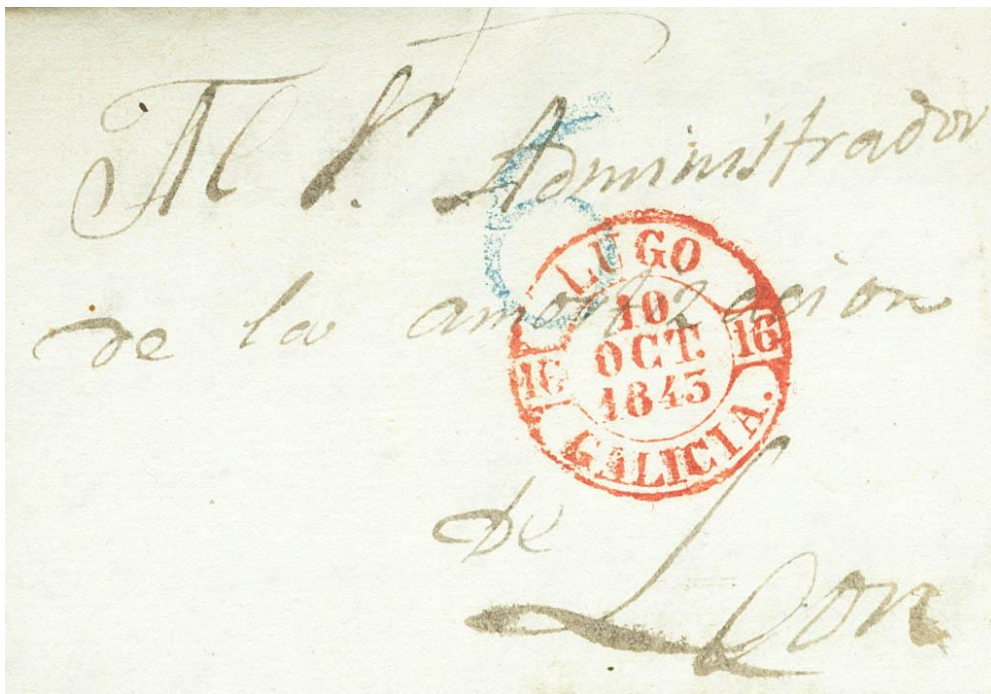 Al Sr. Administrador
de la amortizacion
de Leon
6
LUGO
10
OCT.
1843
16 16
GALICIA.